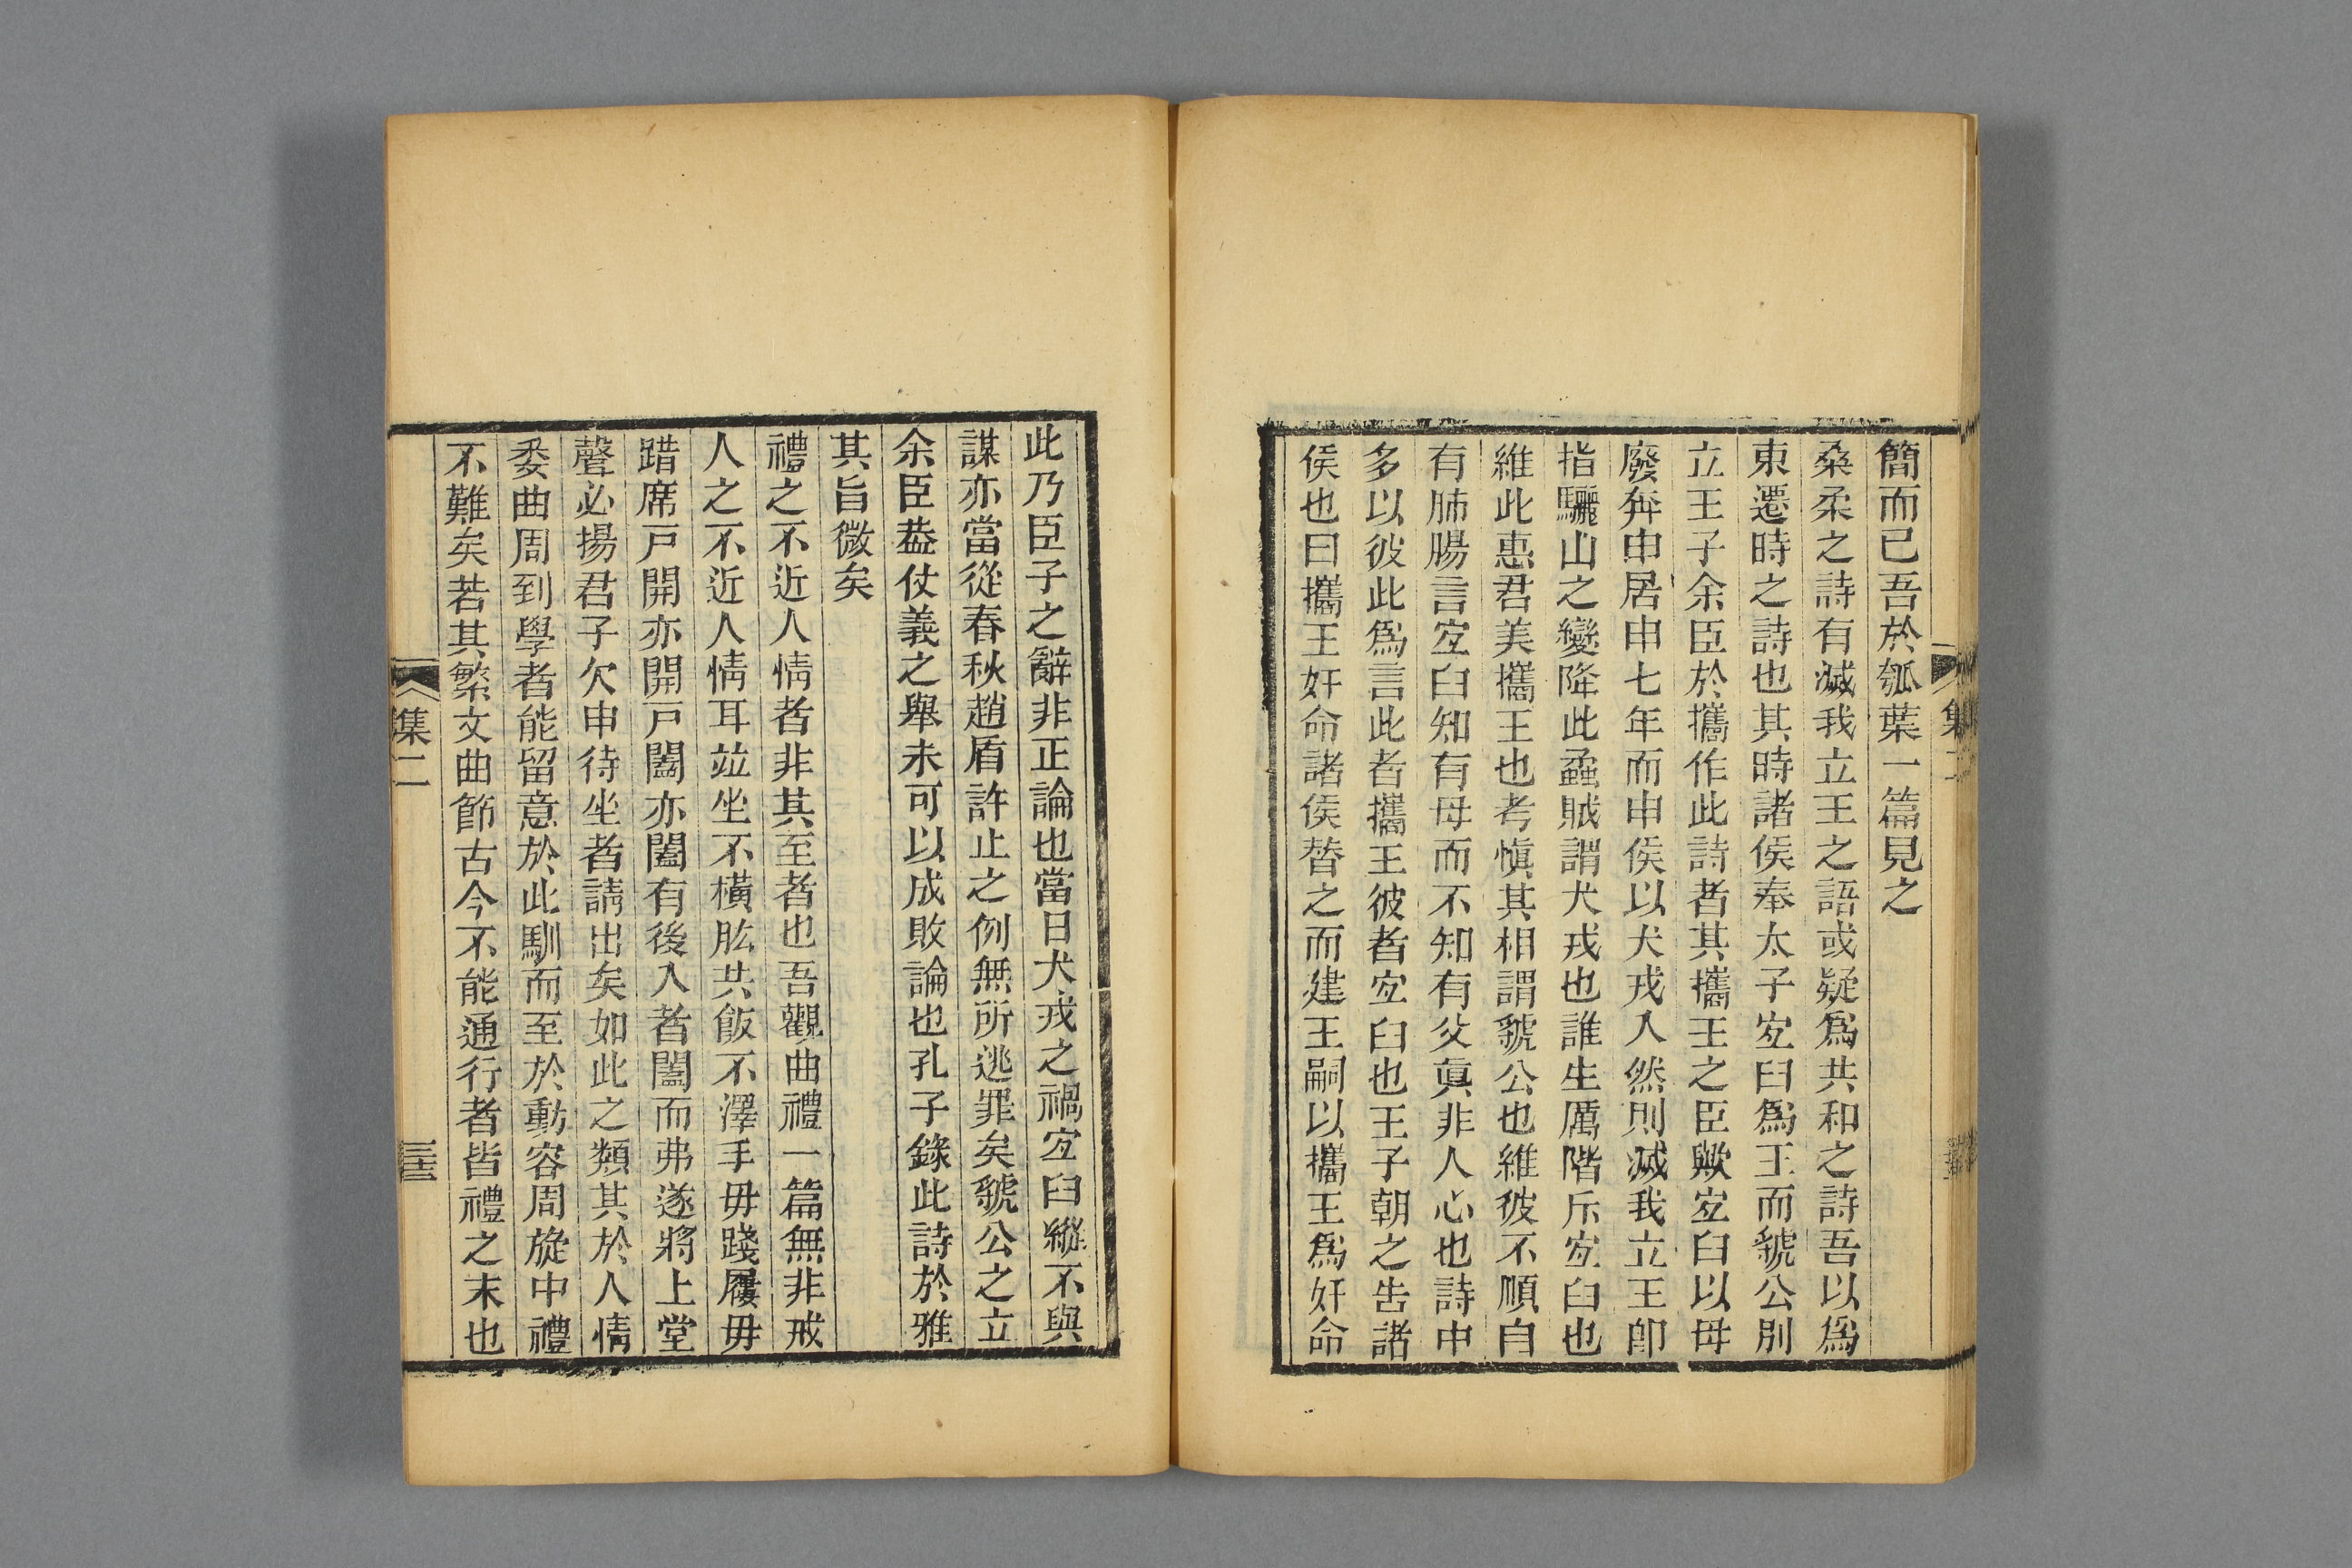 簡而已吾於瓠葉一篇見之
桑柔之詩有滅我立王之語或疑爲共和之詩吾以爲
東遷時之詩也其時諸侯奉太子宐臼爲王而虢公別
立王子余臣於攜作此詩者其攜王之臣歟宐臼以毋
廢奔申居申七年而申侯以犬戎入然則滅我立王卽
指驪山之變降此蟊賊謂犬戎也誰生厲階斥宐臼也
維此惠君美攜王也考愼其相謂虢公也維彼不順自
有肺腸言宐臼知有母而不知有父眞非人心也詩中
多以彼此爲言此者攜王彼者宐臼也王子朝之告諸
侯也曰攜王奸命諸侯替之而建王嗣以攜王爲奸命
此乃臣子之辭非正論也當日犬戎之禍宐臼縱不與
謀亦當從春秋趙盾許止之例無所逃罪矣虢公之立
余臣葢仗義之舉未可以成敗論也孔子錄此詩於雅
其旨微矣
禮之不近人情者非其至者也吾觀曲禮一篇無非戒
人之不近人情耳竝坐不橫肱共飯不澤手毋踐屨毋
踖席戸開亦開戸闔亦闔有後入者闔而弗遂將上堂
聲必揚君子欠申侍坐者請出矣如此之類其於人情
委曲周到學者能留意於此馴而至於動容周旋中禮
不難矣若其繁文曲節古今不能通行者皆禮之末也
集二